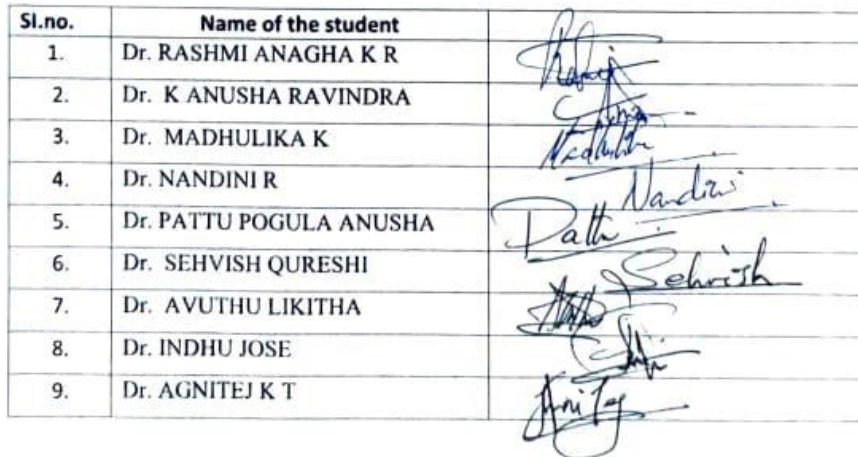 Sl.no. Name of the student
1. Dr. RASHMI ANAGHA K R
2. Dr. K ANUSHA RAVINDRA
3. Dr. MADHULIKA K
4. Dr. NANDINI R Nandini
5. Dr. PATTU POGULA ANUSHA
6. Dr. SEHVISH QURESHI Sehvish
7. Dr. AVUTHU LIKITHA
8. Dr. INDHU JOSE
9. Dr. AGNITEJ K T